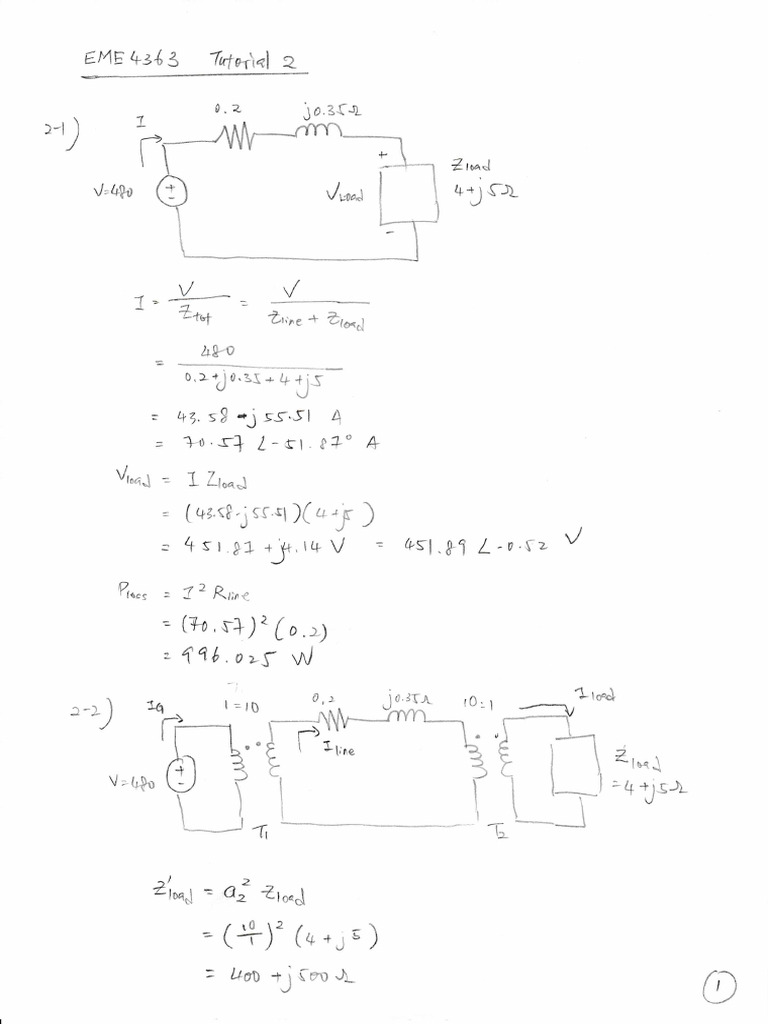 EME4363 Tutorial 2
2-1)
I
0.2
j0.35Ω
V=480
+
-
+
VLoad
-
Zload
4+j5Ω
I = V / Ztot = V / Zline + Zload
= 480 / 0.2+j0.35+4+j5
= 43.58 -j55.51 A
= 70.57 ∠-51.87° A
Vload = I Zload
= (43.58-j55.51)(4+j5)
= 451.87 +j4.14 V = 451.89 ∠-0.52 V
Ploss = I² Rline
= (70.57)² (0.2)
= 996.025 W
2-2)
IG
1=10
0.2
j0.35Ω
10:1
Iload
Iline
V=480
+
-
Zload
=4+j5Ω
T1
T2
Z'load = a₂² Zload
= (10/1)² (4+j5)
= 400 +j500Ω
1